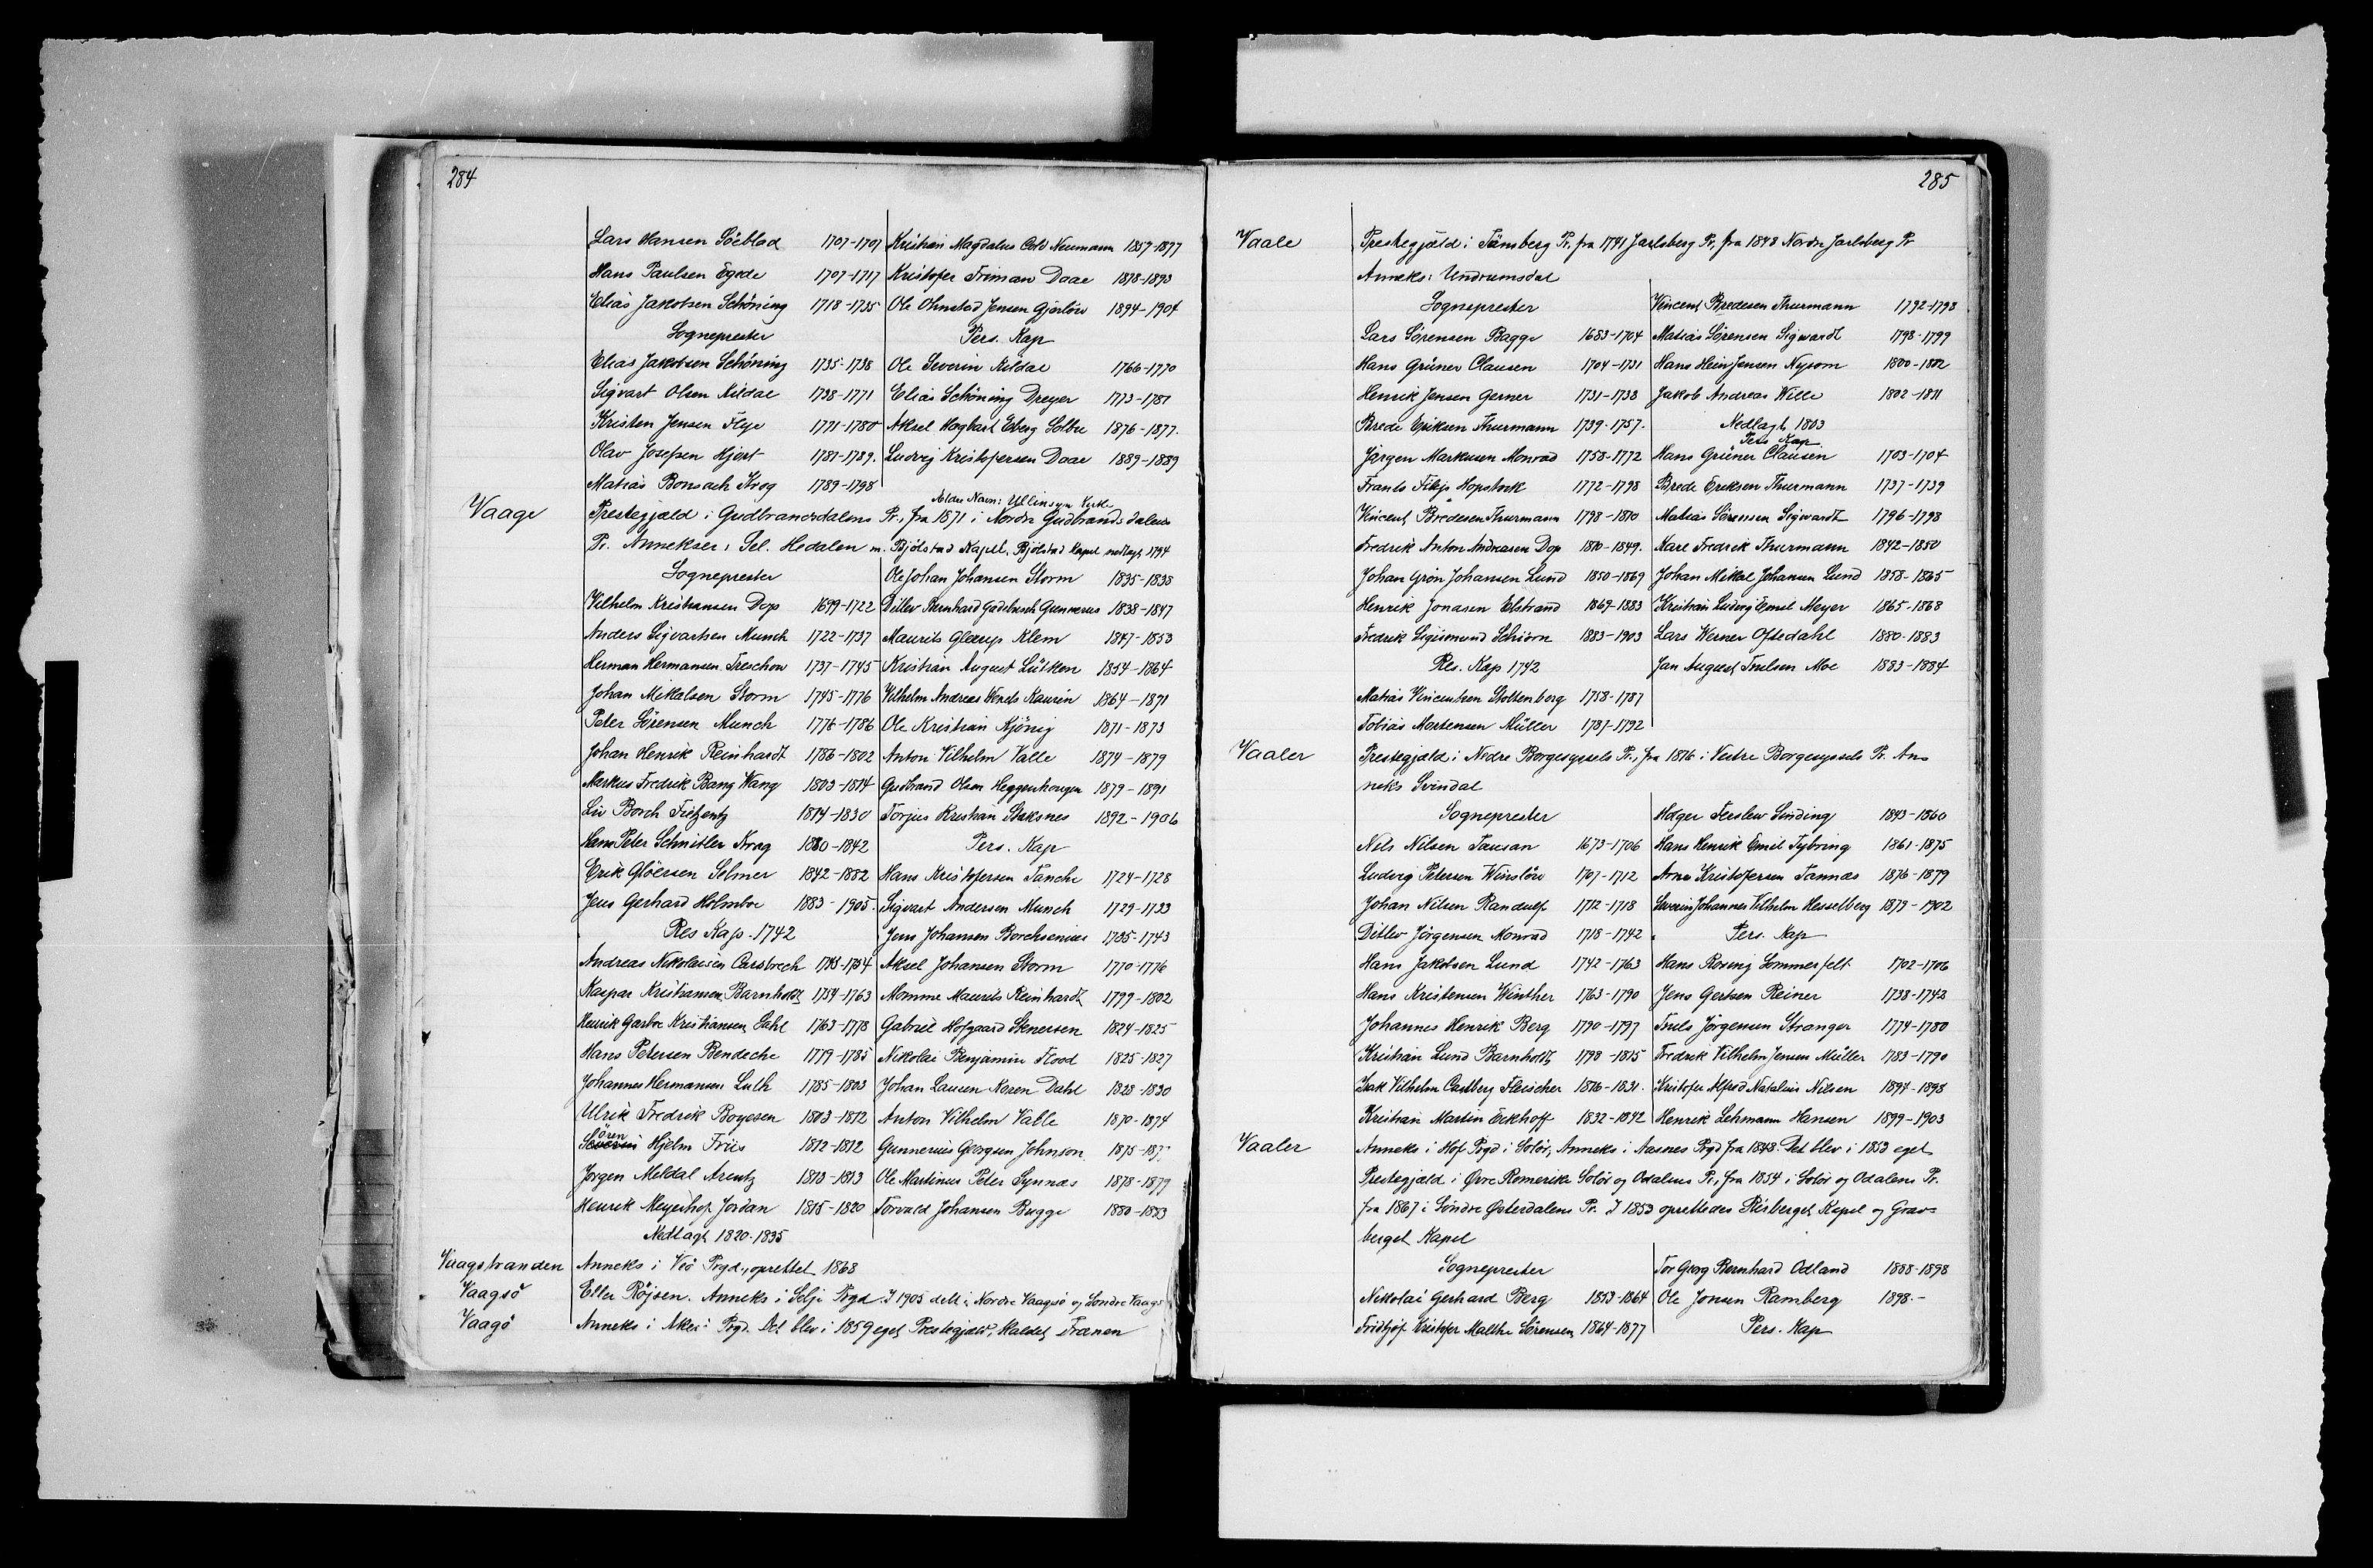 284
Lars Hansen Söeblad 1707-1707
Hans Paulsen Egede 1707-1717
Elias Jakobsen Schöning 1718-1735
Sogneprester
Elias Jakobsen Schöning 1735-1738
Sigvart Olsen Kildal 1738-1771
Kristen Jensen Flye 1771-1780
Olav Josefsen Hjort 1781-1789.
Matias Bonsach Krog 1789-1798
Kristian Magdalus Neumann 1857-1877
Kristofer Friman Daae 1878-1893
Ole Olmstad Jensen Gjerløw 1894-1904
Pers. Kap
Ole Severin Kildal 1766-1770
Elias Schöning Dreyer 1773-1781
Aksel Hagbart Esberg Solbu 1876-1877.
Ludvig Kristofersen Daae 1889-1889
Vaage
Ældre Navn: Ullinsyn Kirke
Prestegjæld i Gudbrandsdalens Pr., fra 1871 i Nordre Gudbrandsdalens
Pr. Annekser, Sel. Hedalen m. Bjölstad Kapel. Bjölstad Kapel nedlagt 1794
Sogneprester
Vilhelm Kristiansen Dop 1699-1722
Anders Sigvartsen Munch 1722-1737
Herman Hermansen Treschow 1737-1745
Johan Mikkelsen Storm 1745-1776
Peter Sörensen Munch 1776-1786
Johan Henrik Reinhardt 1786-1802
Markus Fredrik Bang Wang 1803-1814
Liv Borch Fietzentz 1814-1830
Hans Peter Schnitler Krag 1830-1842
Erik Glöersen Selmer 1842-1882
Jens Gerhard Holmboe 1883-1905.
Res Kap. 1742
Andreas Nikolaisen Carsbrech 1743-1754
Kaspar Kristiansen Barnholdt 1754-1763
Henrik Garboe Kristiansen Dahl 1763-1778
Hans Petersen Bendeche 1779-1785
Johannes Hermansen Luth 1785-1803
Ulrik Fredrik Boyesen 1803-1812
Sören Hjelm Friis 1812-1812
Jørgen Meldal Arentz 1813-1813
Henrik Meyerhof Jordan 1815-1820
Nedlagt 1820-1835
Ole Johan Johansen Storm 1835-1838
Ditlev Bernhard Gadebusch Gunnerus 1838-1847
Maurits Glærup Klem 1847-1853
Kristian August Lütken 1854-1864
Vilhelm Andreas Wexels Kaurin 1864-1871
Ole Kristian Kjönig 1871-1873
Anton Vilhelm Valle 1874-1879
Gudbrand Olsen Heggenhougen 1879-1891
Torjus Kristian Staksnes 1892-1906
Pers. Kap
Hans Kristofersen Tanche 1724-1728
Sigvart Andersen Munch 1729-1733
Jens Johansen Borchsenius 1735-1743
Aksel Johansen Storm 1770-1776
Momme Maurits Reinhardt 1799-1802
Gabriel Hofgaard Stenersen 1824-1825
Nikolai Benjamin Flood 1825-1827
Johan Lausen Koren Dahl 1828-1830
Anton Vilhelm Valle 1870-1874
Gunnerius Georgsen Johnson 1875-187
Ole Martinus Peter Synnæs 1878-1879
Torvald Johansen Bugge 1880-1883
Vaagstranden Anneks i Veö Prgd., oprettet 1868
Vaagsö Eller Röjsen. Anneks i Selje Prgd. I 1905 delt i Nordre Vaagsö og Søndre Vaags
Vaagö Anneks i Akerö Prgd. Det blev i 1859 eget Prestegjæld, kaldet Frænen
285
Vaale Prestegjæld i Tönsberg Pr., fra 1741 Jarlsberg Pr., fra 1848 Nordre Jarlsberg Pr
Anneks: Undrumsdal
Sogneprester
Lars Sörensen Bagge 1683-1704
Hans Grüner Clausen 1704-1731
Henrik Jensen Gerner 1731-1738
Brede Eriksen Thurmann 1739-1757.
Jörgen Markusen Monrad 1758-1772
Frants Filip Hopstock 1772-1798
Vincent Bredesen Thurmann 1798-1810
Fredrik Anton Andreasen Dop 1810-1849.
Johan Grön Johansen Lund 1850-1869
Henrik Jonasen Elstrand 1869-1883
Fredrik Sigismund Schiørn 1883-1903
Res. Kap 1742
Matias Vincentsen Stoltenberg 1758-1787
Tobias Mortensen Müller 1787-1792
Vincent Bredesen Thurmann 1792-1798
Matias Sörensen Sigwardt 1798-1799
Hans Hein Jensen Nysom 1800-1802
Jakob Andreas Wille 1802-1811
Nedlagt 1803
Pers Kap
Hans Grüner Clausen 1703-1704
Brede Eriksen Thurmann 1737-1739
Matias Sörensen Sigwardt 1796-1798
Karl Fredrik Thurmann 1842-1850
Johan Mikal Johansen Lund 1858-1865
Kristian Ludvig Emil Meyer 1865-1868
Lars Werner Oftedahl 1880-1883
Jan August Truelsen Moe 1883-1884
Vaaler Prestegjæld i Nedre Borgesyssels Pr., fra 1876 i Vestre Borgesyssels Pr. An=
neks Svindal
Sogneprester
Nils Nilsen Tausan 1673-1706
Ludvig Petersen Winslöw 1707-1712
Johan Nilsen Randulf 1712-1718
Ditlev Jörgensen Monrad 1718-1742
Hans Jakobsen Lund 1742-1763
Hans Kristensen Winther 1763-1790
Johannes Henrik Berg 1790-1797
Kristian Lund Barnholdt 1798-1815
Isak Vilhelm Carlberg Fleischer 1816-1831.
Kristian Martin Eckhoff 1832-1842
Holger Ferslew Sinding 1843-1860
Hans Henrik Emil Tybring 1861-1875
Arne Kristofersen Tannæs 1876-1879
Severin Johannes Vilhelm Hesselberg 1879-1902
Pers. Kap
Hans Rosing Sommerfelt 1702-1706
Jens Gertsen Reiner 1738-1742
Truls Jörgensen Stranger 1774-1780
Fredrik Vilhelm Jensen Müller 1783-1790
Kristofer Alfred Natalius Nilsen 1894-1898
Henrik Lehmann Hansen 1899-1903
Vaaler Anneks i Hof Prgd i Solör, Anneks i Aasnes Prgd fra 1848. Det blev i 1853 eget
Prestegjæld i Øvre Romerike Solör og Odalens Pr., fra 1854 i Solör og Odalens Pr.
fra 1867 i Söndre Østerdalens Pr. I 1853 oprettedes Risberget Kapel og Grav=
berget Kapel
Sogneprester
Nikolai Gerhard Berg 1853-1864
Fridtjof Kristofer Malthe Sörensen 1864-1877
Tor Georg Bernhard Odland 1888-1898
Ole Jonsen Ramberg 1898.-
Pers. Kap